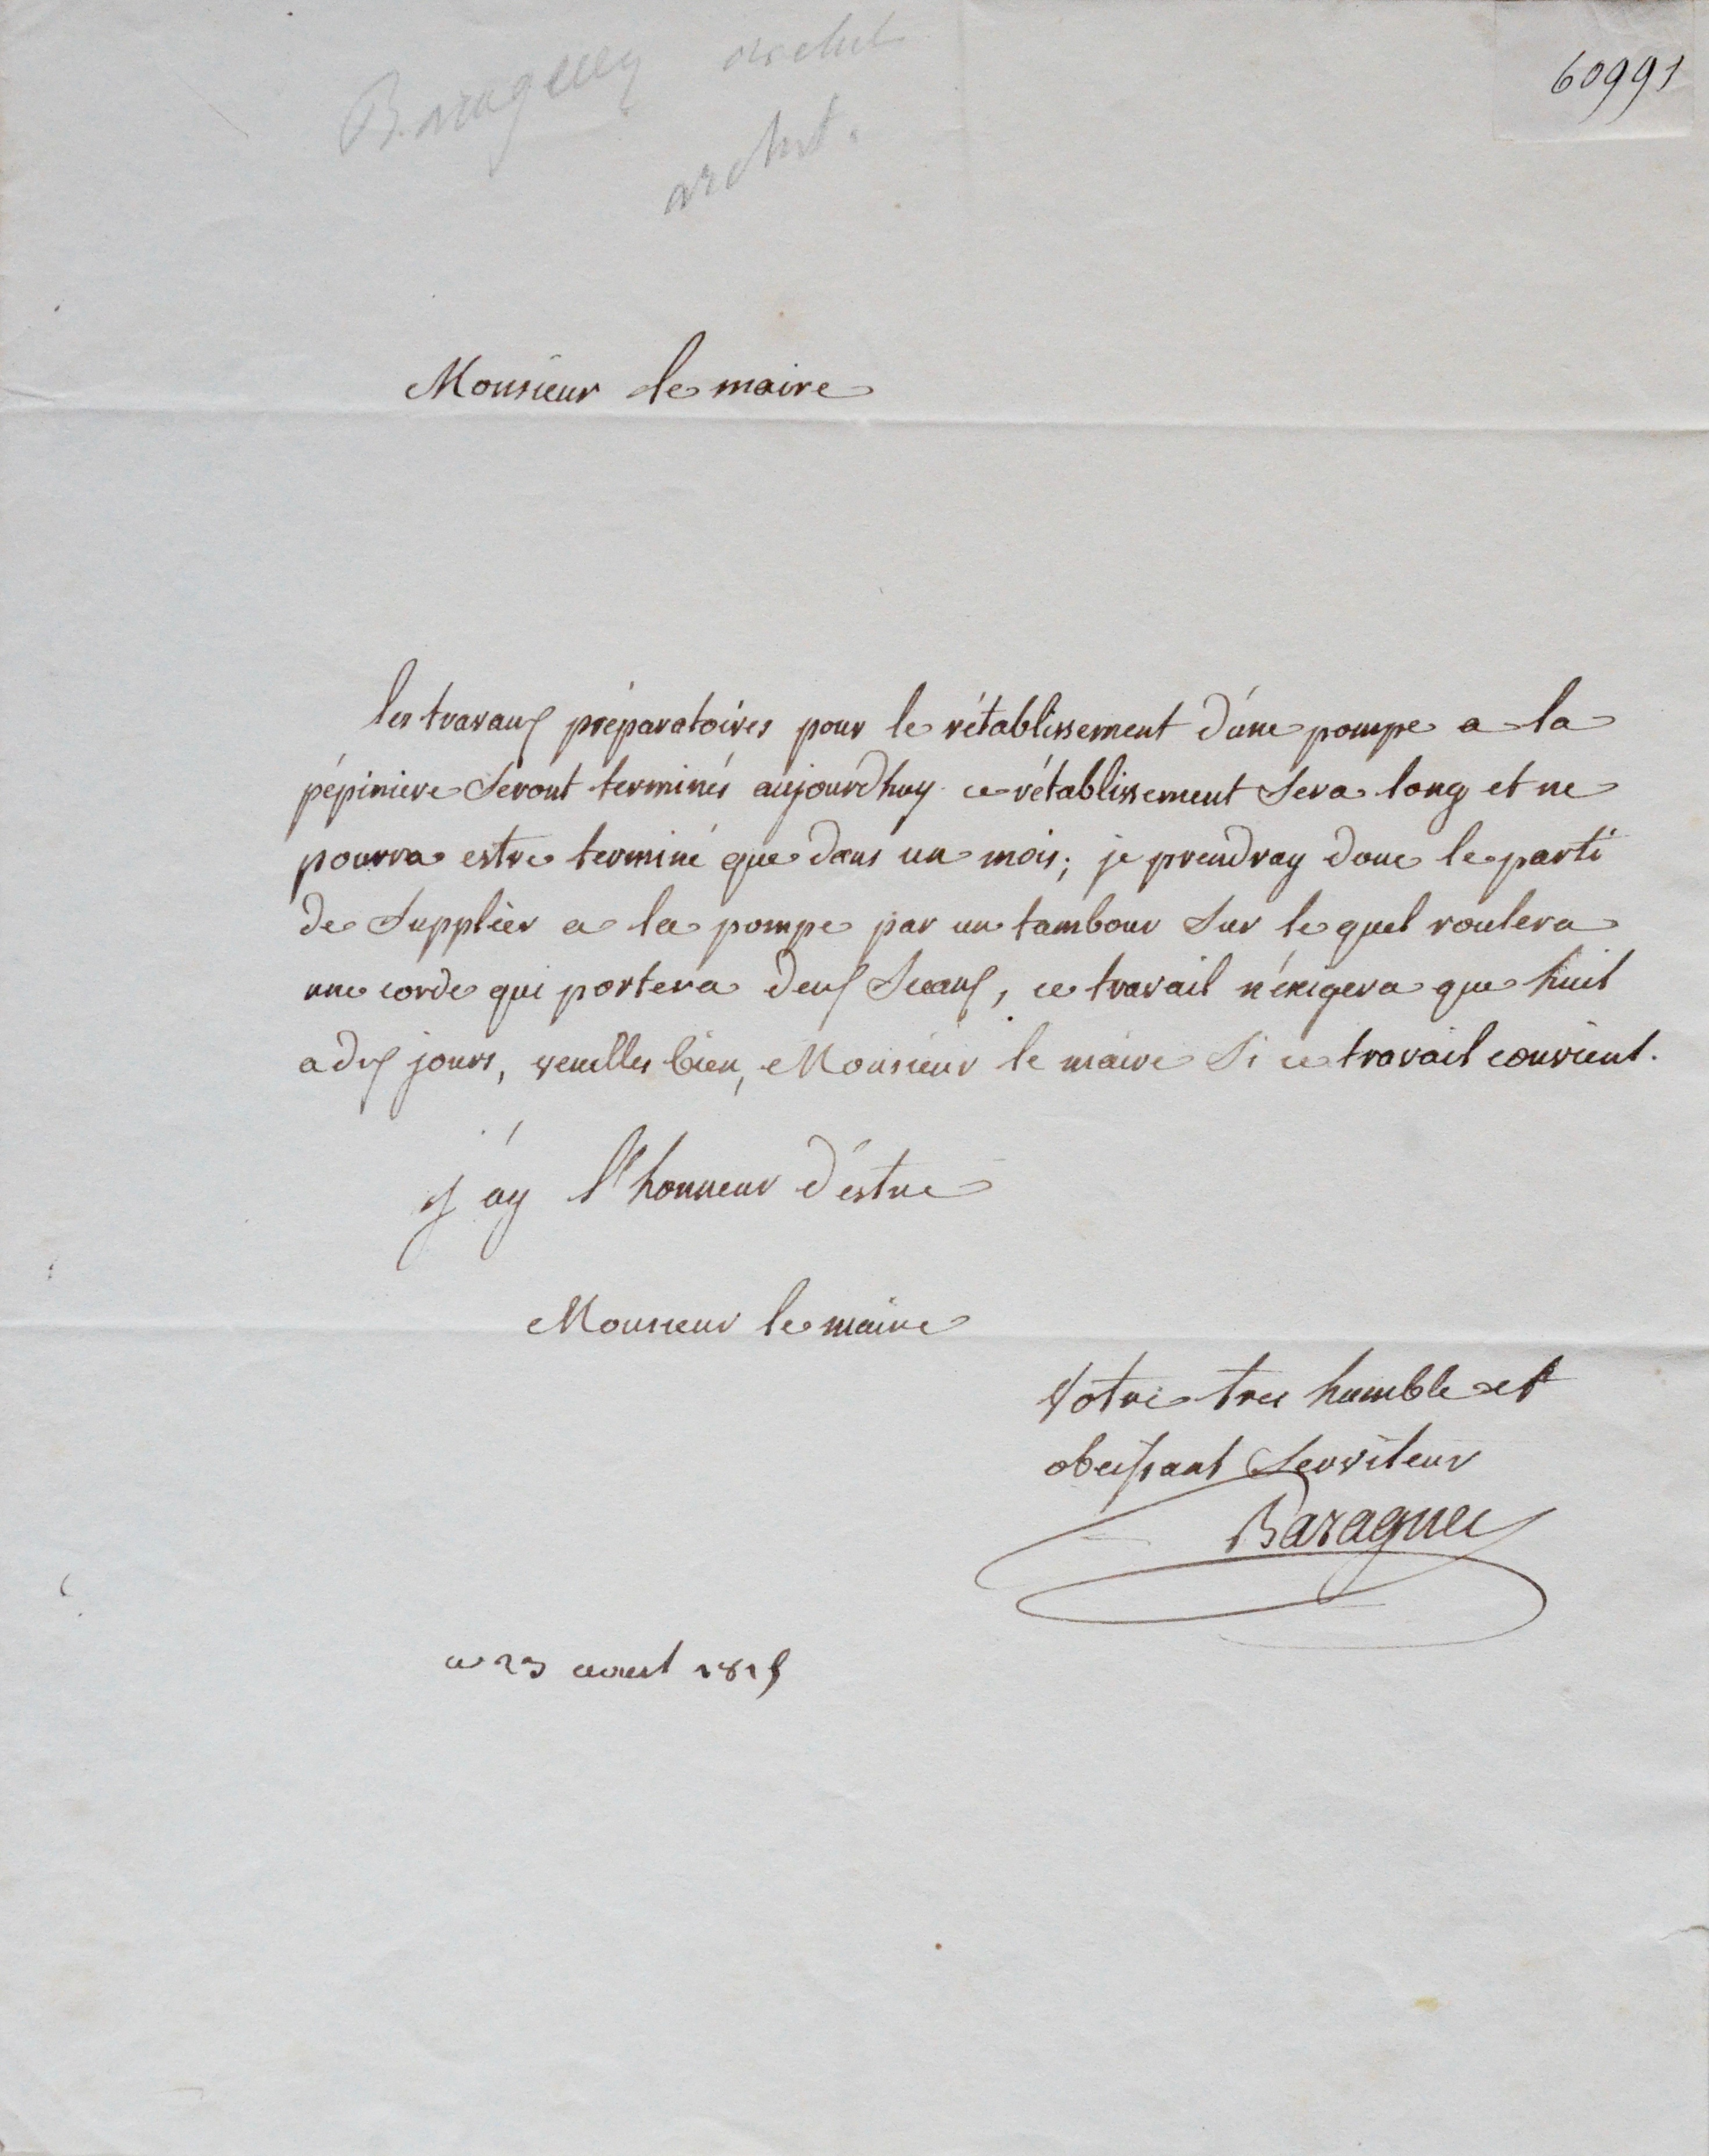 Baraguey archit
archit.
60991
Monsieur le maire
les travaux préparatoires pour le rétablissement d'une pompe a la
pépiniere Seront terminés aujourd'huy ce rétablissement Sera long et ne
pourra estre terminé que dans un mois; je prendray donc le parti
de Supplier a la pompe par un tambour Sur le quel roulera
une corde qui portera deux Sceaux, ce travail n'éxigera que huit
a dix jours, veuilles bien, Monsieur le maire Si ce travail convient.
j'ay l'honneur d'estre
Monsieur le maire
Votre tres humble et
obeissant Serviteur
Baraguey
ce 23 aoust 1815